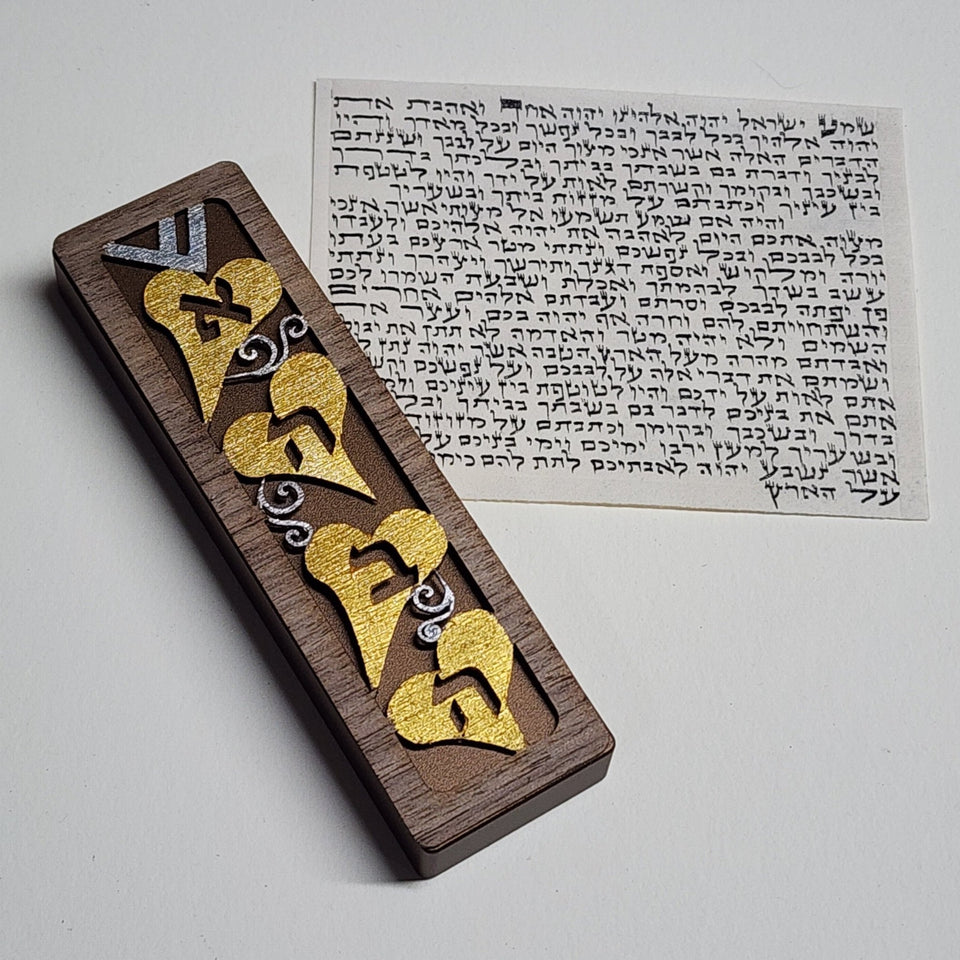 ש
אהבה
שמע ישראל יהוה אלהינו יהוה אחד ואהבת את
יהוה אלהיך בכל לבבך ובכל נפשך ובכל מאדך והיו
הדברים האלה אשר אנכי מצוך היום על לבבך ושננתם
לבניך ודברת בם בשבתך בביתך ובלכתך בדרך
ובשכבך ובקומך וקשרתם לאות על ידך והיו לטטפת
בין עיניך וכתבתם על מזזות ביתך ובשעריך
והיה אם שמע תשמעו אל מצותי אשר אנכי
מצוה אתכם היום לאהבה את יהוה אלהיכם ולעבדו
בכל לבבכם ובכל נפשכם ונתתי מטר ארצכם בעתו
יורה ומלקוש ואספת דגנך ותירשך ויצהרך ונתתי
עשב בשדך לבהמתך ואכלת ושבעת השמרו לכם
פן יפתה לבבכם וסרתם ועבדתם אלהים אחרים
והשתחויתם להם וחרה אף יהוה בכם ועצר את
השמים ולא יהיה מטר והאדמה לא תתן את יבולה
ואבדתם מהרה מעל הארץ הטבה אשר יהוה נתן
ושמתם את דברי אלה על לבבכם ועל נפשכם
אתם לאות על ידכם והיו לטוטפת בין עיניכם
אתם את בניכם לדבר בם בשבתך בביתך
בדרך ובשכבך ובקומך וכתבתם על מזוזות
ובשעריך למען ירבו ימיכם וימי בניכם על
אשר נשבע יהוה לאבתיכם לתת להם כימי
על הארץ